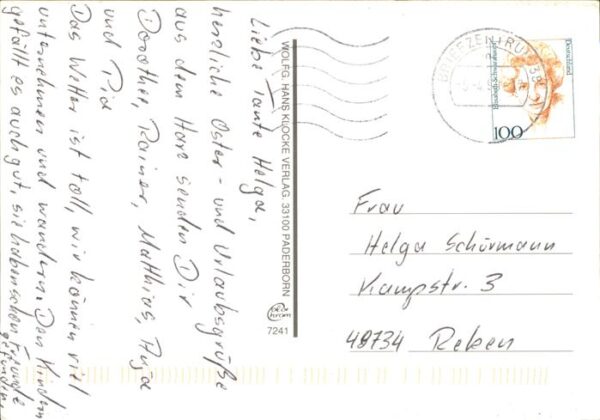 Liebe Tante Helga,
herzliche Oster- und Urlaubsgrüße
aus dem Harz senden Dir
Dorothee, Rainer, Matthias, Anja
und Pia
Das Wetter ist toll, wir können viel
unternehmen und wandern. Den Kindern
gefällt es auch gut, sie haben schon Freunde
gefunden.
WOLFG. HANS KLOCKE VERLAG, 33100 PADERBORN
7241
BRIEFZENTRUM
Deutschland
100
Frau
Helga Schürmann
Kampstr. 3
48734 Reken